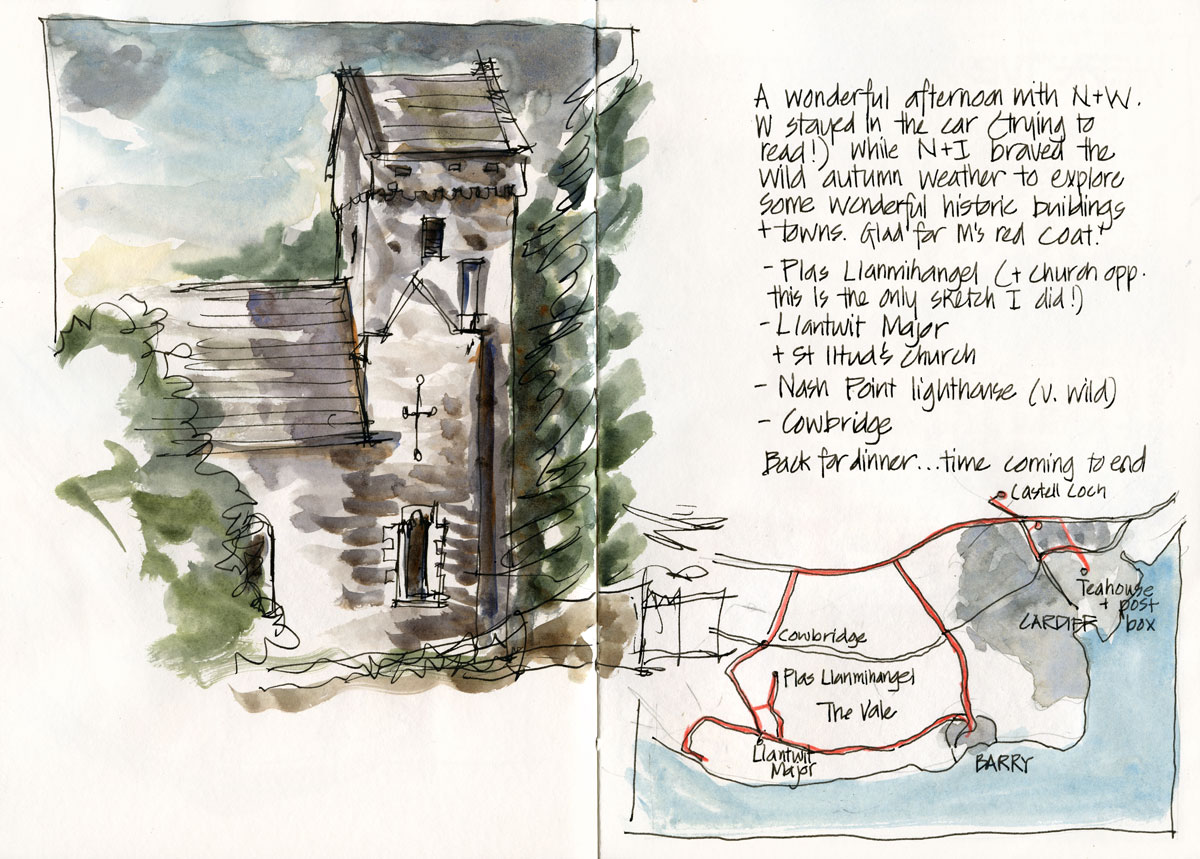 A wonderful afternoon with N+W.
W stayed in the car (trying to
read!) while N+I braved the
wild autumn weather to explore
some wonderful historic buildings
+ towns. Glad for M's red coat!
- Plas Llanmihangel (+ church opp.
this is the only sketch I did!)
- Llantwit Major
+ St Iltud's church
- Nash Point lighthouse (v. wild)
- Cowbridge
Back for dinner...time coming to end
Castell Loch
Teahouse
+ post
box
CARDIFF
Cowbridge
Plas Llanmihangel
The Vale
Llantwit
Major
BARRY